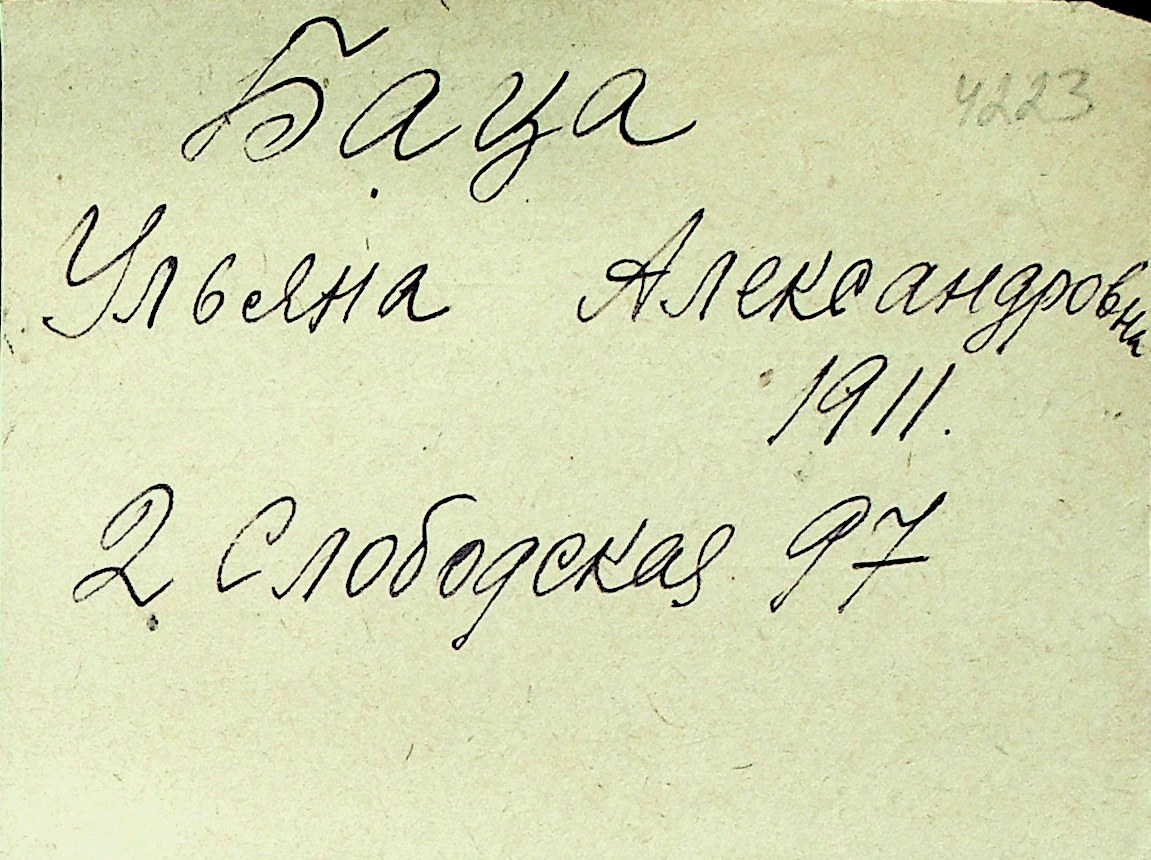 Баца 4223
Ульяна Александровна
1911.
2 Слободская 97